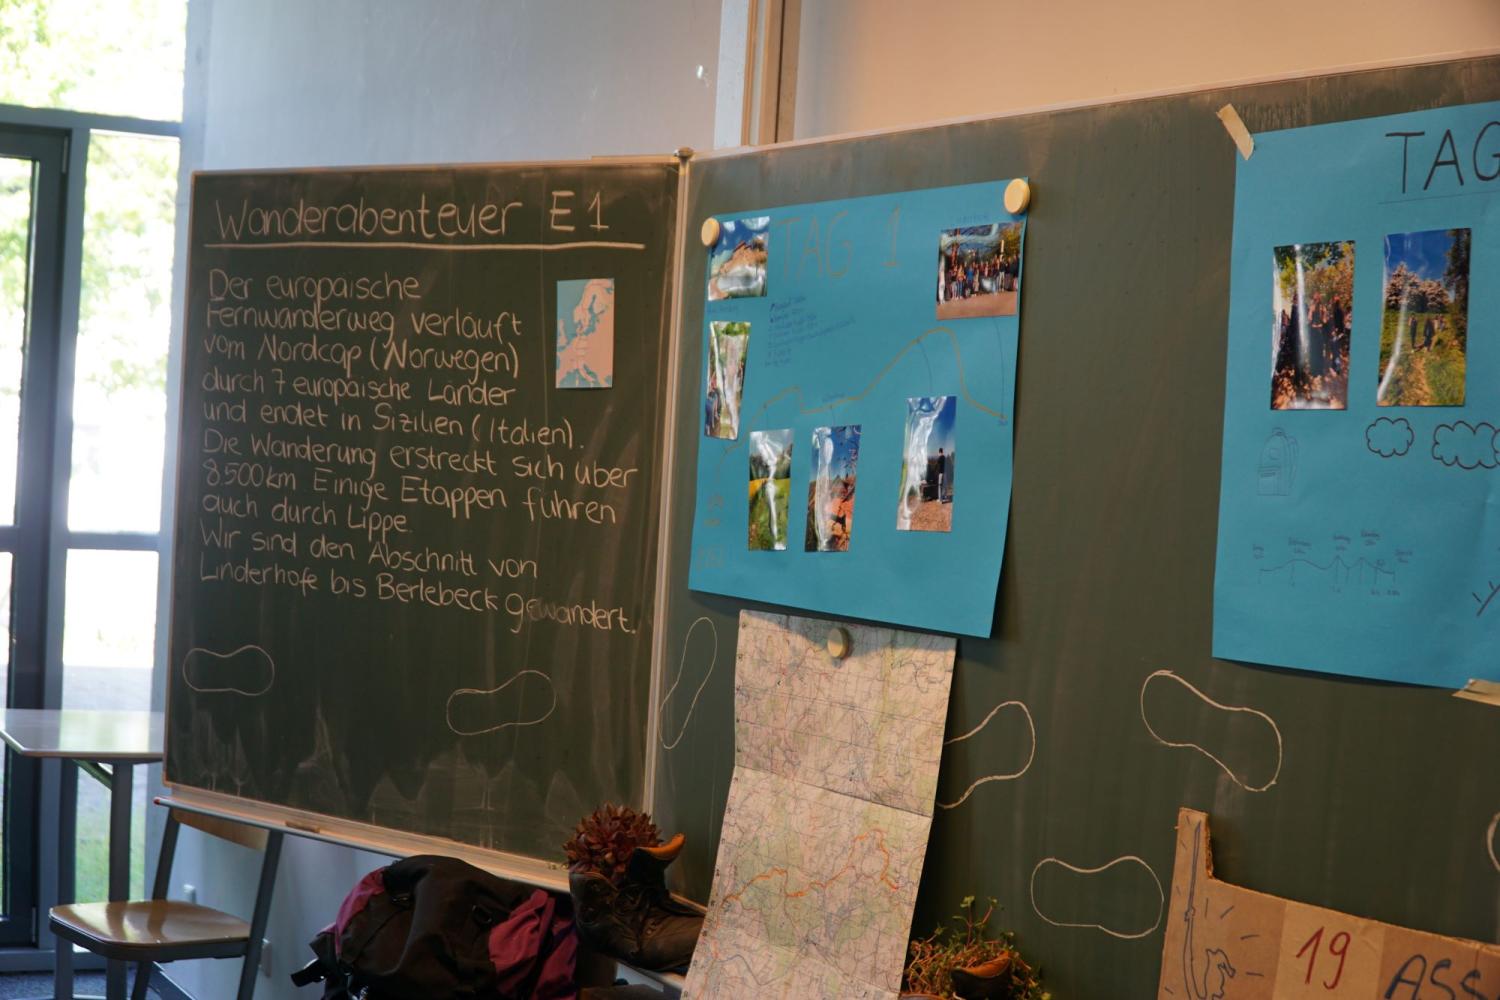 Wanderabenteuer E1
Der europäische
Fernwanderweg verläuft
vom Nordcap (Norwegen)
durch 7 europäische Länder
und endet in Sizilien (Italien).
Die Wanderung erstreckt sich über
8.500km. Einige Etappen führen
auch durch Lippe.
Wir sind den Abschnitt von
Linderhofe bis Berlebeck gewandert.
TAG 1
TAG
19
ASS